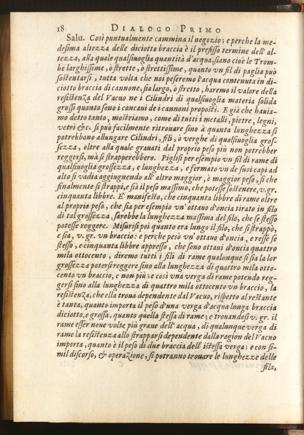 18 DIALOGO PRIMO
Salu. Così puntualmente cammina il negozio: e perche la me-
desima altezza delle diciotto braccia è il prefisso termine dell'al-
tezza, alla quale qualsiuoglia quantità d'acqua, siano cioè le Trom-
be larghissime, ò strette, ò strettissime, quanto vn fil di paglia può
sostentarsi, tutta volta che noi peseremo l'acqua contenuta in di-
ciotto braccia di cannone, sia largo, ò stretto, haremo il valore della
resistenza del Vacuo ne i Cilindri di qualsiuoglia materia solida
grossi quanto sono i concaui de i cannoni proposti. E già che hauia-
mo detto tanto, mostriamo, come di tutti i metalli, pietre, legni,
vetri &c. si può facilmente ritrouare sino à quanta lunghezza si
potrebbono allungare Cilindri, fili, ò verghe di qualsiuoglia gros-
sezza, oltre alla quale grauati dal proprio peso più non potrebber
reggersi, mà si strapperebbero. Piglisi per esempio vn fil di rame di
qualsiuoglia grossezza, e lunghezza, e fermato vn de suoi capi ad
alto si vadia aggiugnendo all'altro maggior, è maggior peso, sì che
finalmente si strappi, e sia il peso massimo, che potesse sostenere, v. gr.
cinquanta libbre. E manifesto, che cinquanta libbre di rame oltre
al proprio peso, che sia per esempio vn'ottauo d'oncia tirato in filo
di tal grossezza, sarebbe la lunghezza massima del filo, che se stesso
potesse reggere. Misurisi poi quanto era lungo il filo, che si strappò,
e sia, v. gr. vn braccio: e perche pesò vn'ottauo d'oncia, e resse se
stesso, e cinquanta libbre appresso, che sono ottaui d'oncia quattro
mila ottocento, diremo tutti i fili di rame qualunque si sia la lor
grossezza potersi reggere sino alla lunghezza di quattro mila otto-
cento vn braccio, e non più: e così vna verga di rame potendo reg-
gersi sino alla lunghezza di quattro mila ottocento vn braccio, la
resistenza, che ella troua dependente dal Vacuo, rispetto al restante
è tanta, quanto importa il peso d'vna verga d'acqua lunga braccia
diciotto, e grossa, quanto quella stessa di rame; e trouandosi v. gr. il
rame esser noue volte più graue dell'acqua, di qualunque verga di
rame la resistenza allo strapparsi dependente dalla ragion del Vacuo
importa, quanto è il peso di due braccia dell'istessa verga: e con si-
mil discorso, & operazione, si potranno trouare le lunghezze delle
fila,